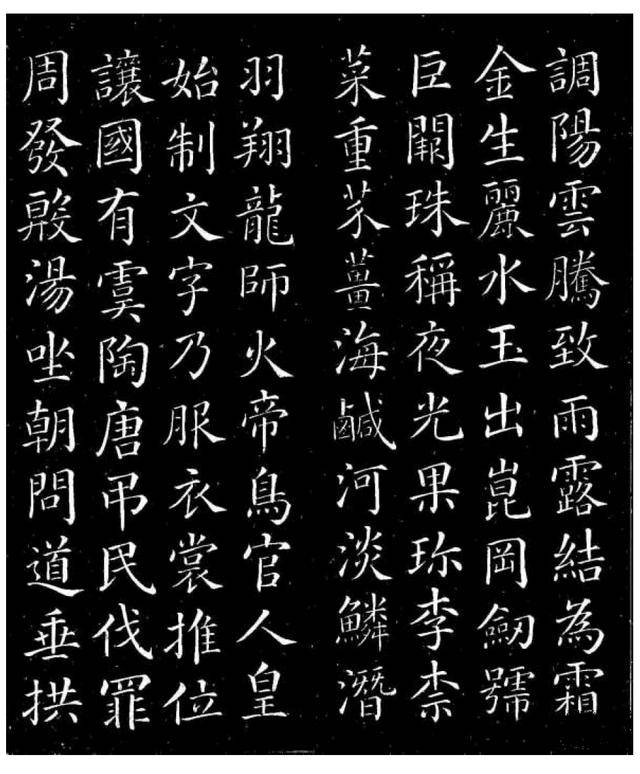 調陽雲騰致雨露結為霜
金生麗水玉出崑岡劒號
巨闕珠稱夜光果珎李柰
菜重芥薑海鹹河淡鱗潛
羽翔龍師火帝鳥官人皇
始制文字乃服衣裳推位
讓國有虞陶唐吊民伐罪
周發殷湯坐朝問道垂拱